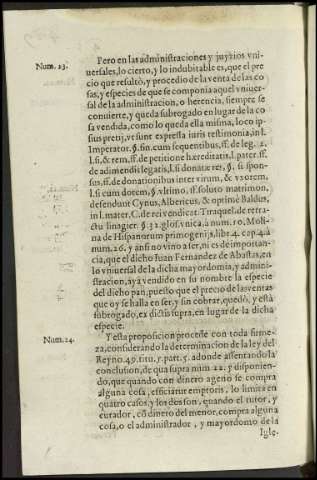 Num. 23.
Pero en las administraciones y juyzios vni-
uersales, lo cierto, y lo indubitable es, que el pre
cio que resultò, y procedio de la venta de las co
sas, y especies de que se componia aquel vniuer-
sal de la administracion, o herencia, siempre se
conuierte, y queda subrogado en lugar de la co
sa vendida, como lo queda ella misma, loco ip-
sius pretij, ve sunt expressa iuris testimonia, in l.
Imperator. §. fin. cum sequentibus, ff. de leg. 2.
l. si & rem, ff. de petitione hæreditatis, l. pater. ff.
de adimendis legatis, l. si donatæ res, §. si spon-
sus, ff. de donationibus inter virum, & vxorem,
l. si cum dotem, §. vltimo, ff. soluto matrimon.
defendunt Cynus, Albericus, & optimè Baldus,
in l. mater, C. de rei vendicat. Tiraquel. de retra-
ctu linagier. §. 32. glos. vnica, à num. 10. Moli-
na de Hispanorum primogenijs, lib. 4. cap. 4. à
num. 26. y ansi no vino a ser, ni es de importan-
cia, que el dicho Iuan Fernandez de Abastas, en
lo vniuersal de la dicha mayordomia, y adminis-
tracion, aya vendido en su nombre la especie
del dicho pan, puesto que el precio de las ventas
que oy se halla en ser, y sin cobrar, quedò, y està
subrogado, ex dictis supra, en lugar de la dicha
especie.
Num. 24.
Y esta proposicion procede con toda firme-
za, considerando la determinacion de la ley del
Reyno 49. titu. 5. part. 5. adonde assentando la
conclusion, de qua supra num. 22. y disponien-
do, que quando con dinero ageno se compra
alguna cosa, efficiatur emptoris, lo limita en
quatro casos, y los dos son, quando el tutor, y
curador, cõ dinero del menor, compra alguna
cosa, o el administrador, y mayordomo de la
Igle-